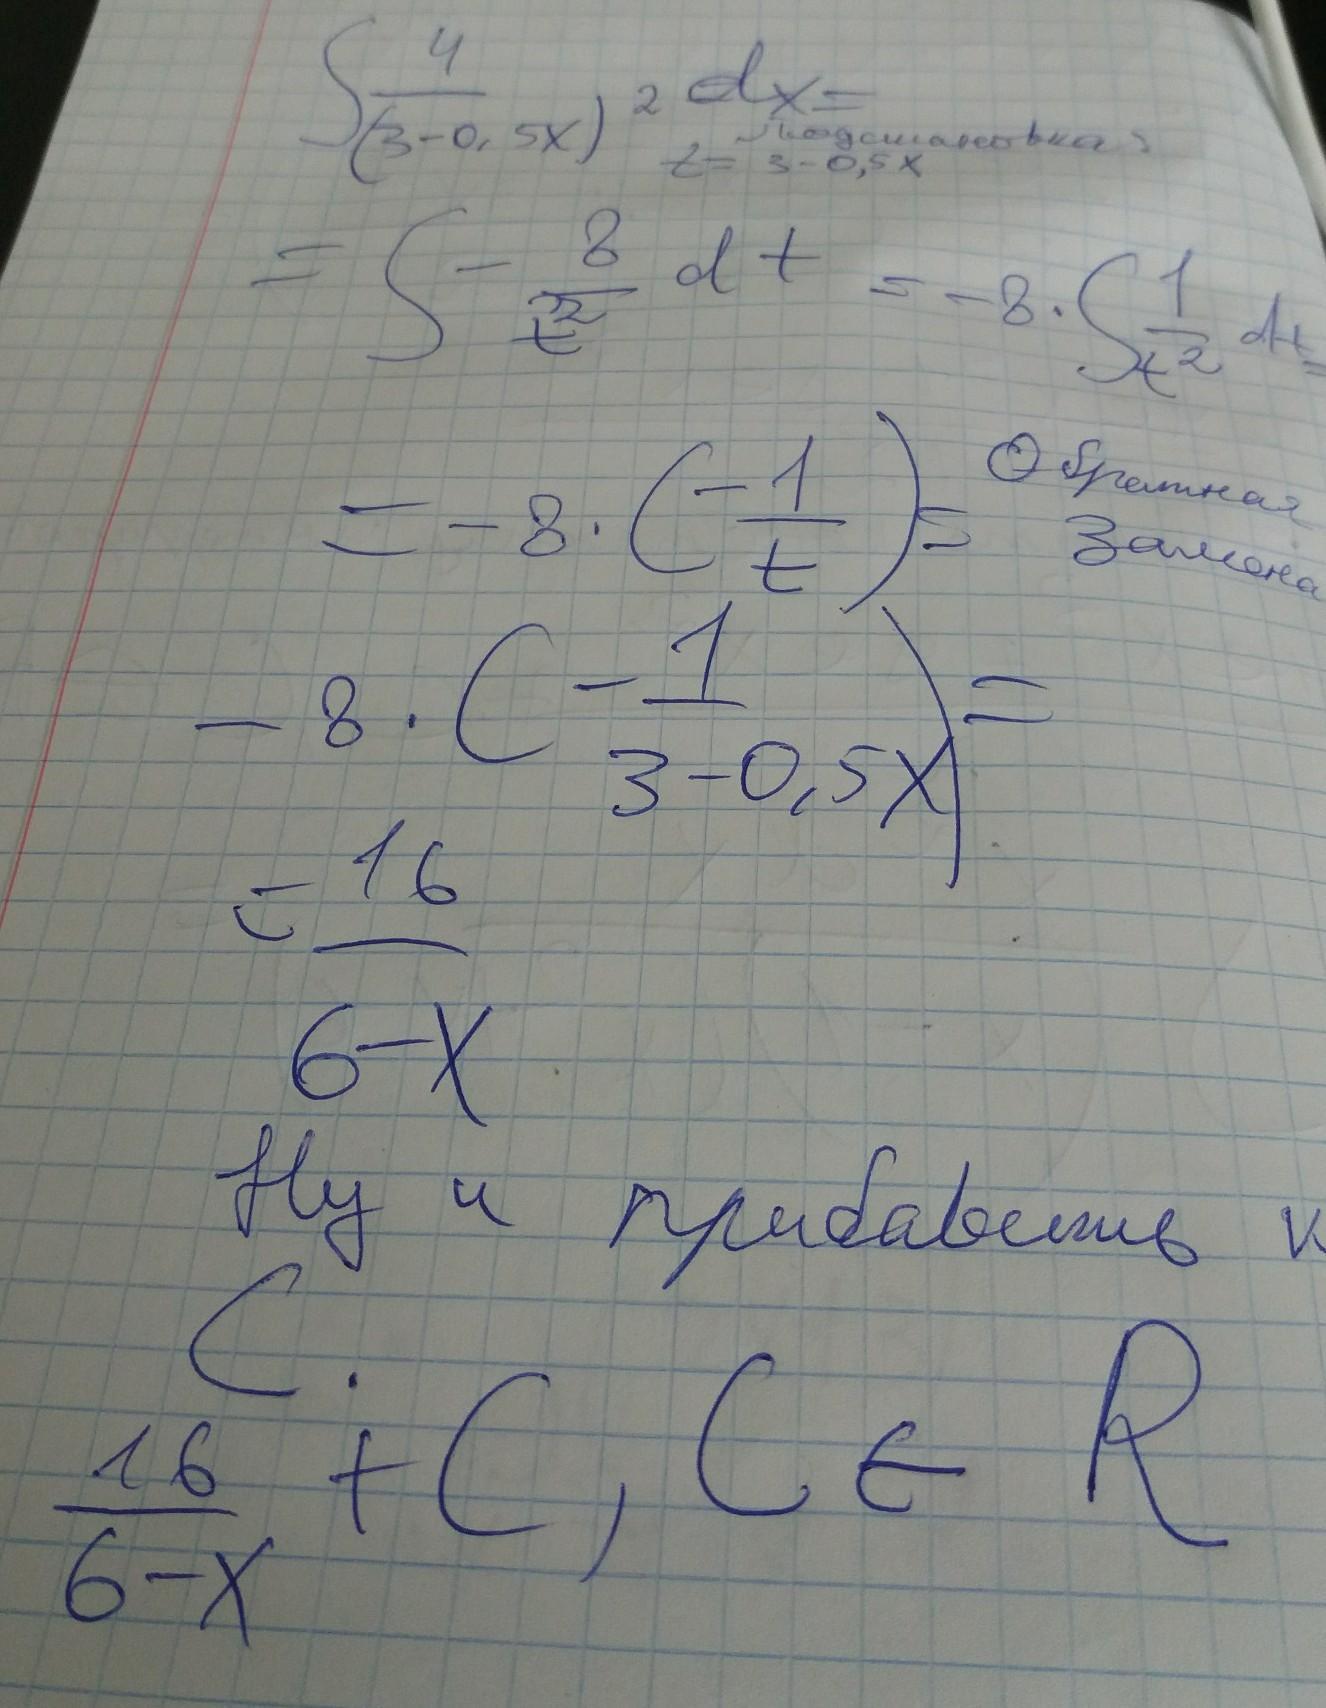 ∫ 4/(3-0,5x)² dx=
Подстановка:
t= 3-0,5x
= ∫ - 8/t² dt = -8· ∫ 1/t² dt=
= -8·(-1/t)= Обратная
замена
-8·(-1/(3-0,5x))=
= 16/(6-x)
Ну и прибавить к
C.
16/(6-x) + C, C ∈ R